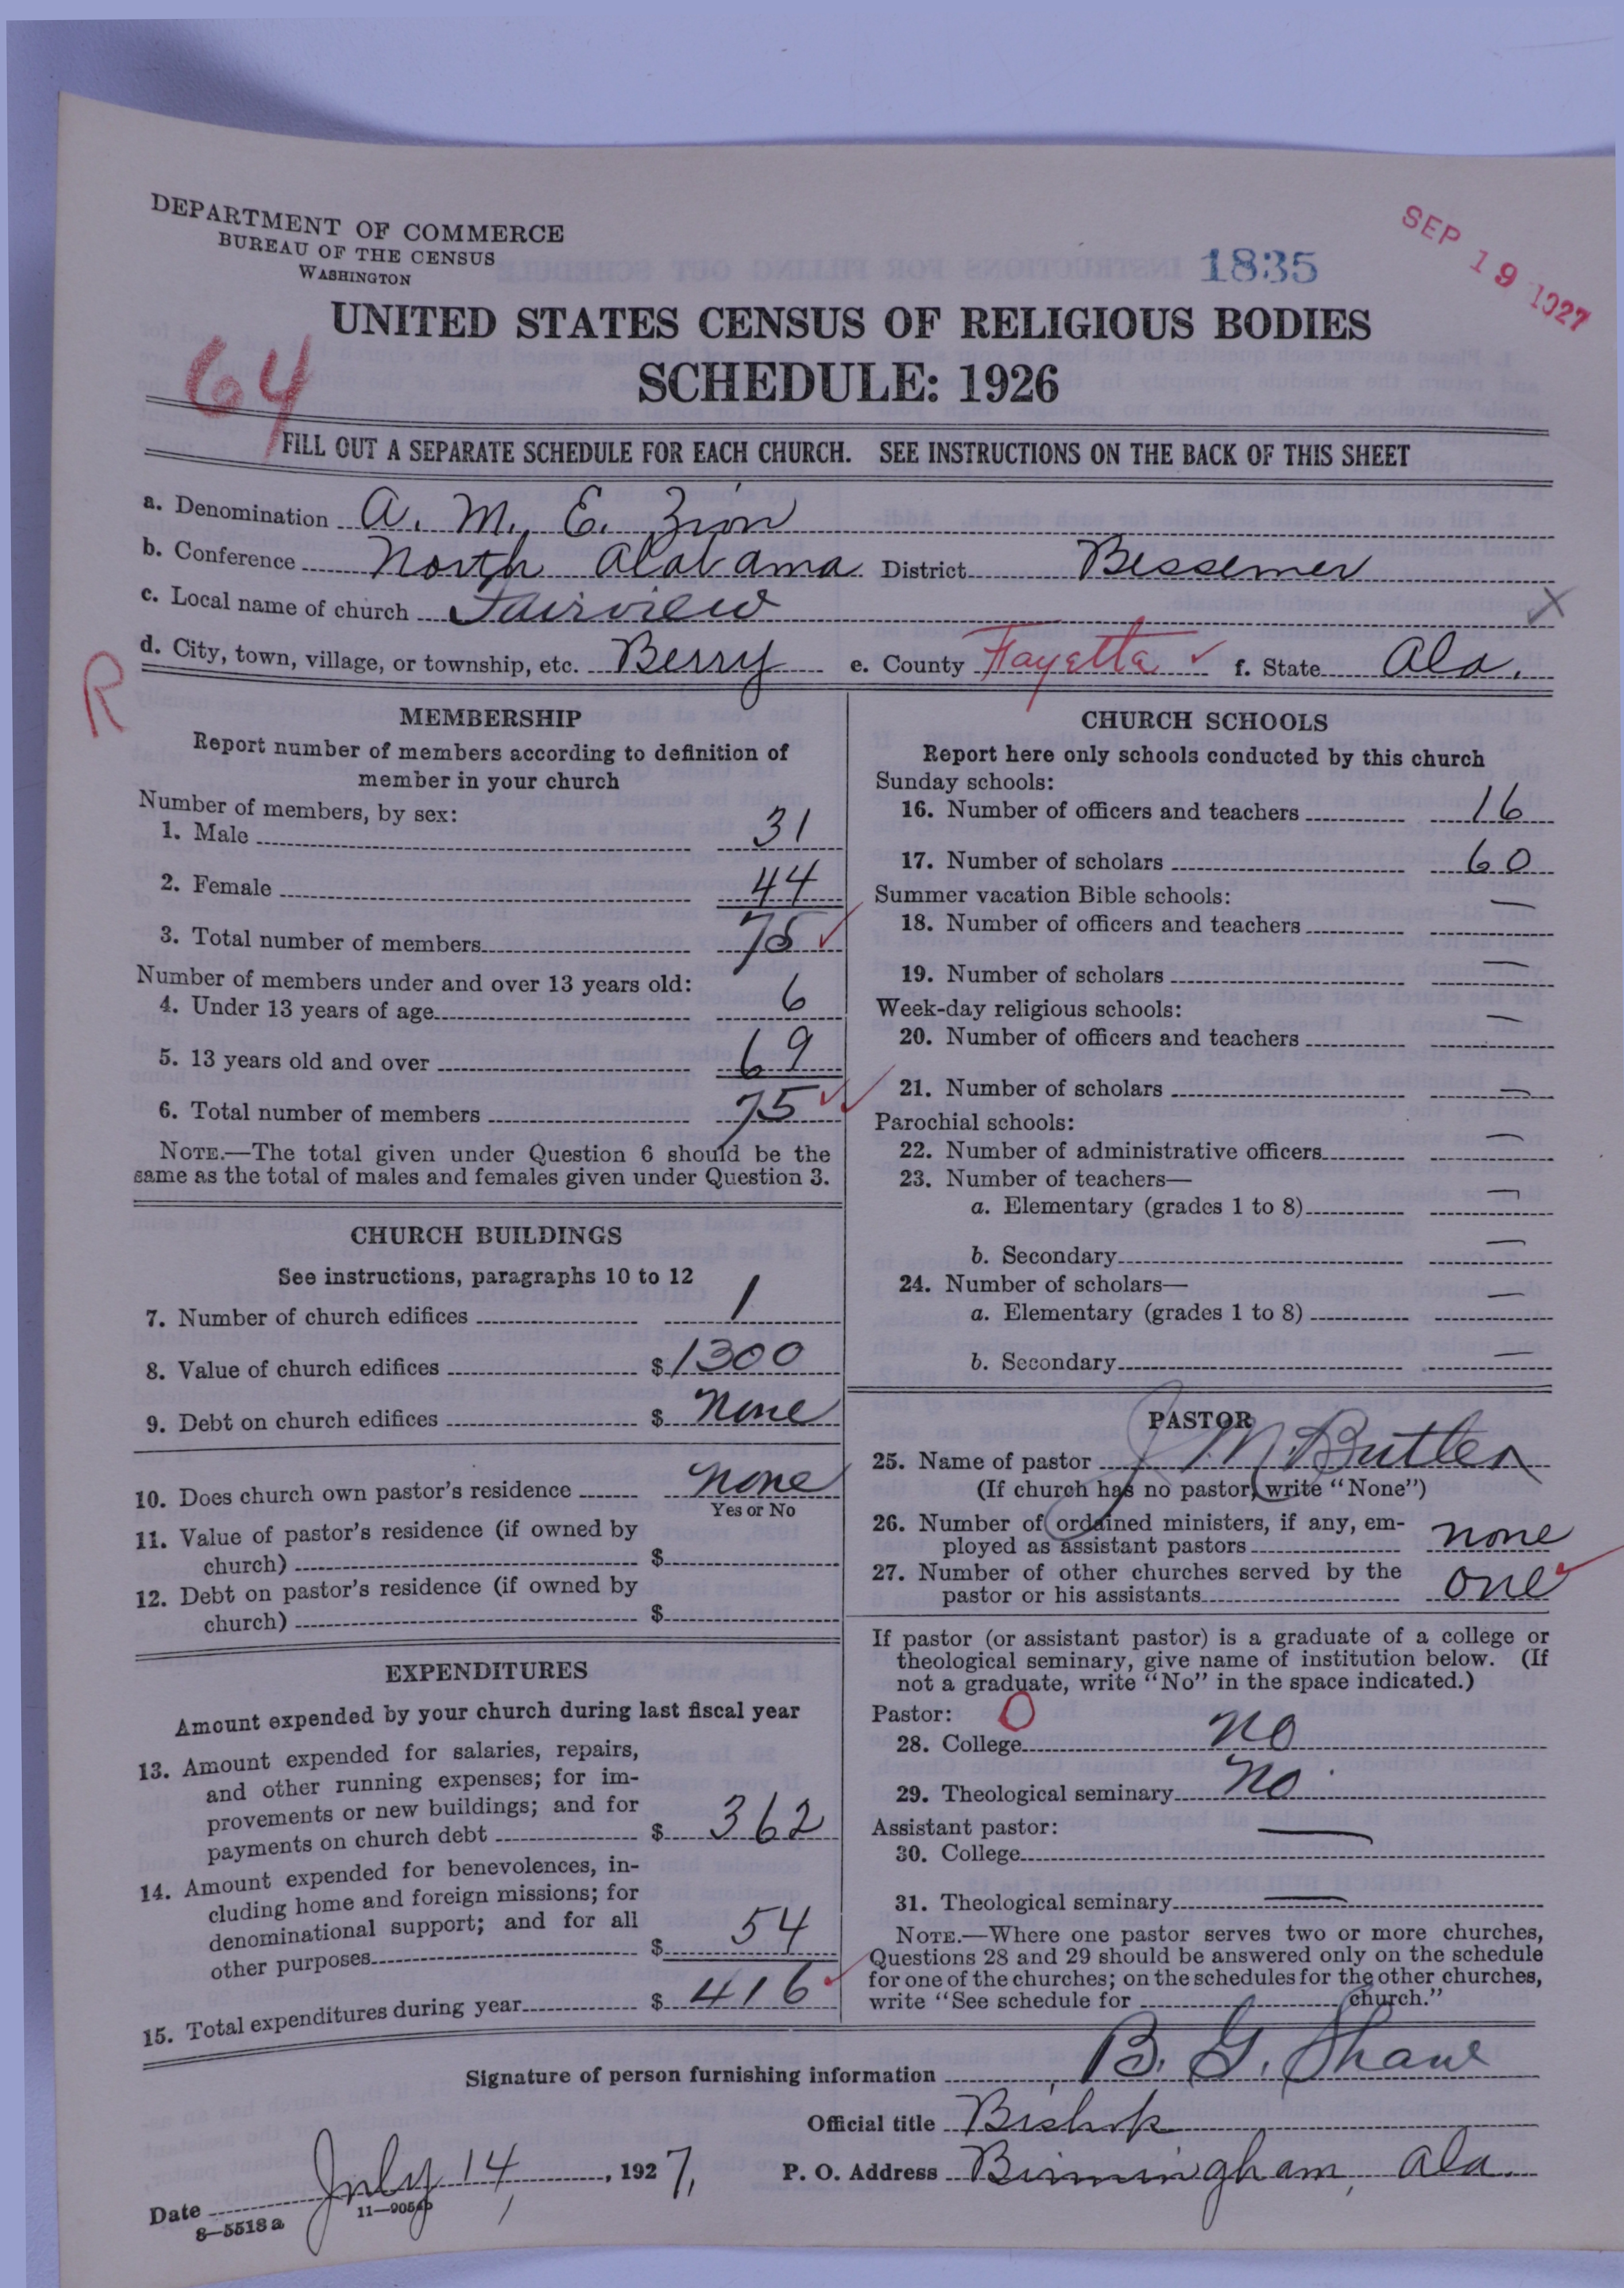 DEPARTMENT OF COMMERCE
BUREAU OF THE CENSUS
WASHINGTON
1835
SEP 19 1927
UNITED STATES CENSUS OF RELIGIOUS BODIES
SCHEDULE: 1926
64
FILL OUT A SEPARATE SCHEDULE FOR EACH CHURCH. SEE INSTRUCTIONS ON THE BACK OF THIS SHEET
a. Denomination A. M. E. Zion
b. Conference North Alabama District Bessemer
c. Local name of church Fairview
d. City, town, village, or township, etc. Berry e. County Fayette ✓ f. State Ala.
R
MEMBERSHIP
Report number of members according to definition of
member in your church
Number of members, by sex:
1. Male 31
2. Female 44
3. Total number of members 75 ✓
Number of members under and over 13 years old:
4. Under 13 years of age 6
5. 13 years old and over 69
6. Total number of members 75 ✓✓
NOTE.—The total given under Question 6 should be the
same as the total of males and females given under Question 3.
CHURCH BUILDINGS
See instructions, paragraphs 10 to 12
7. Number of church edifices 1
8. Value of church edifices $1300
9. Debt on church edifices $ None
10. Does church own pastor's residence none
Yes or No
11. Value of pastor's residence (if owned by
church) $
12. Debt on pastor's residence (if owned by
church) $
EXPENDITURES
Amount expended by your church during last fiscal year
13. Amount expended for salaries, repairs,
and other running expenses; for im-
provements or new buildings; and for
payments on church debt $ 362
14. Amount expended for benevolences, in-
cluding home and foreign missions; for
denominational support; and for all
other purposes $ 54
15. Total expenditures during year $ 416 ✓
CHURCH SCHOOLS
Report here only schools conducted by this church
Sunday schools:
16. Number of officers and teachers 16
17. Number of scholars 60
Summer vacation Bible schools:
18. Number of officers and teachers —
19. Number of scholars —
Week-day religious schools:
20. Number of officers and teachers —
21. Number of scholars —
Parochial schools:
22. Number of administrative officers —
23. Number of teachers—
a. Elementary (grades 1 to 8) —
b. Secondary —
24. Number of scholars—
a. Elementary (grades 1 to 8) —
b. Secondary —
PASTOR
25. Name of pastor J M. Butler
(If church has no pastor, write "None")
26. Number of ordained ministers, if any, em-
ployed as assistant pastors none
27. Number of other churches served by the
pastor or his assistants one ✓
If pastor (or assistant pastor) is a graduate of a college or
theological seminary, give name of institution below. (If
not a graduate, write "No" in the space indicated.)
Pastor: O
28. College No
29. Theological seminary No
Assistant pastor:
30. College —
31. Theological seminary —
NOTE.—Where one pastor serves two or more churches,
Questions 28 and 29 should be answered only on the schedule
for one of the churches; on the schedules for the other churches,
write "See schedule for church."
Signature of person furnishing information B. G. Shaw
Official title Bishop
Date July 14, 1927, P. O. Address Birmingham, Ala.
8—5518a 11—9054b